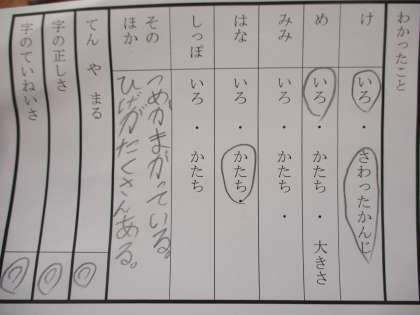 わかったこと
け いろ ・ さわったかんじ
め いろ ・ かたち ・ 大きさ
みみ いろ ・ かたち ・
はな いろ ・ かたち ・
しっぽ いろ ・ かたち
そのほか つめがまがっている。
ひげがたくさんある。
てん や まる
字の正しさ
字のていねいさ